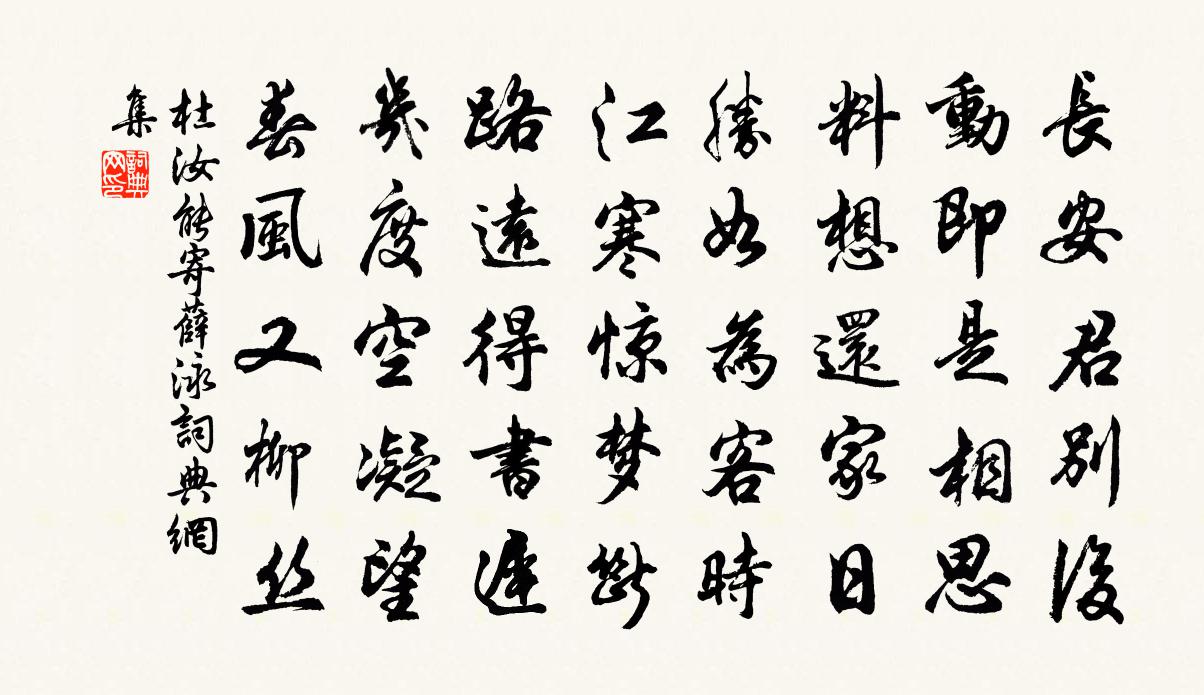 長安君別後
動即是相思
料想還家日
勝如為客時
江寒惊梦斷
路遠得書遲
幾度空凝望
春風又柳丝
杜汝能寄薛泳詞典網
集
詞典
网印